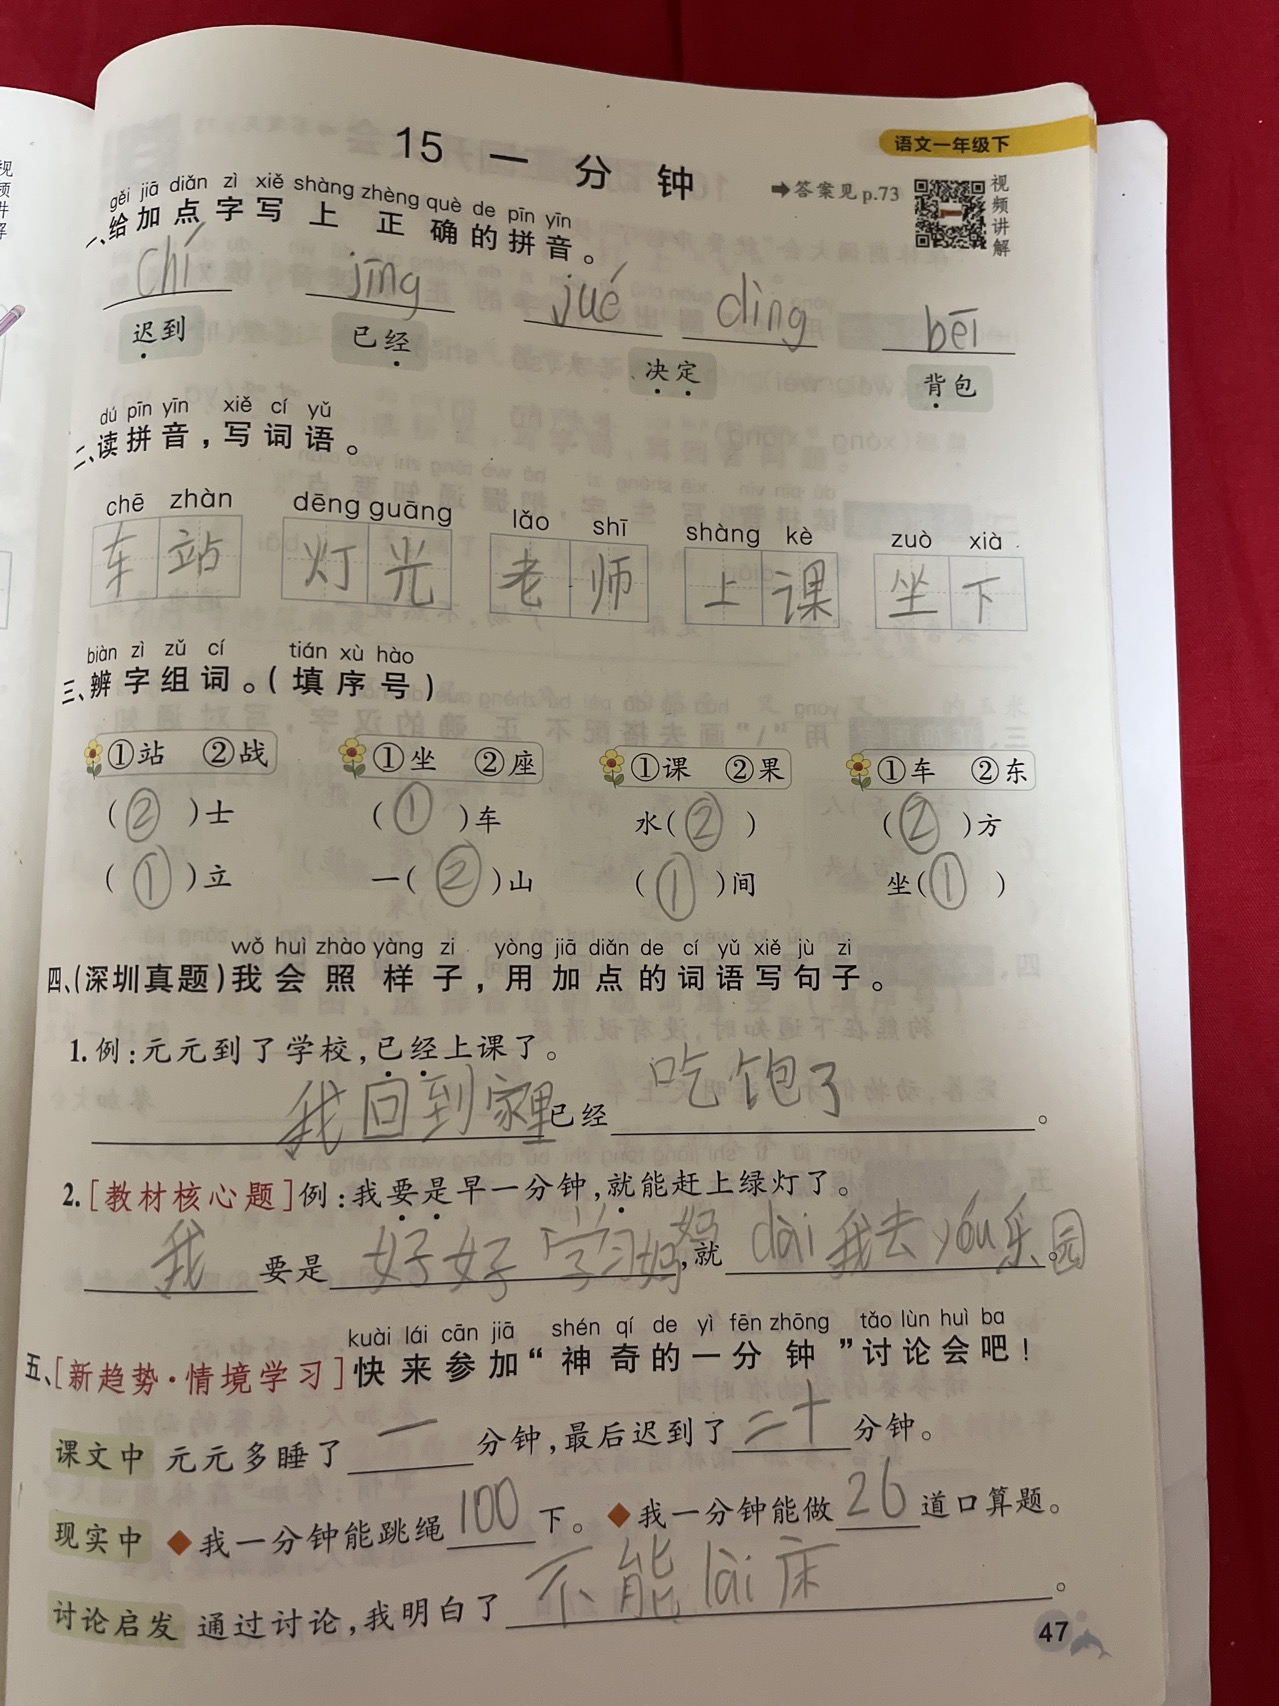 语文一年级下
15 一分钟
➡答案见 p.73
视频讲解
gěi jiā diǎn zì xiě shàng zhèng què de pīn yīn
一、给加点字写上正确的拼音。
chí jīng jué dìng bēi
迟到 已经 决定 背包
dú pīn yīn xiě cí yǔ
二、读拼音，写词语。
chē zhàn dēng guāng lǎo shī shàng kè zuò xià
车站 灯光 老师 上课 坐下
biàn zì zǔ cí tián xù hào
三、辨字组词。（填序号）
①站 ②战 ①坐 ②座 ①课 ②果 ①车 ②东
（②）士 （①）车 水（②） （②）方
（①）立 一（②）山 （①）间 坐（①）
wǒ huì zhào yàng zi yòng jiā diǎn de cí yǔ xiě jù zi
四、（深圳真题）我会照样子，用加点的词语写句子。
1. 例：元元到了学校，已经上课了。
我回到家里已经吃饱了。
2. [教材核心题]例：我要是早一分钟，就能赶上绿灯了。
我要是好好学习妈妈，就dài我去yóu乐园。
kuài lái cān jiā shén qí de yì fēn zhōng tǎo lùn huì ba
五、[新趋势·情境学习]快来参加“神奇的一分钟”讨论会吧！
课文中 元元多睡了一分钟，最后迟到了二十分钟。
现实中 ◆我一分钟能跳绳100下。 ◆我一分钟能做26道口算题。
讨论启发 通过讨论，我明白了不能lài床。
47